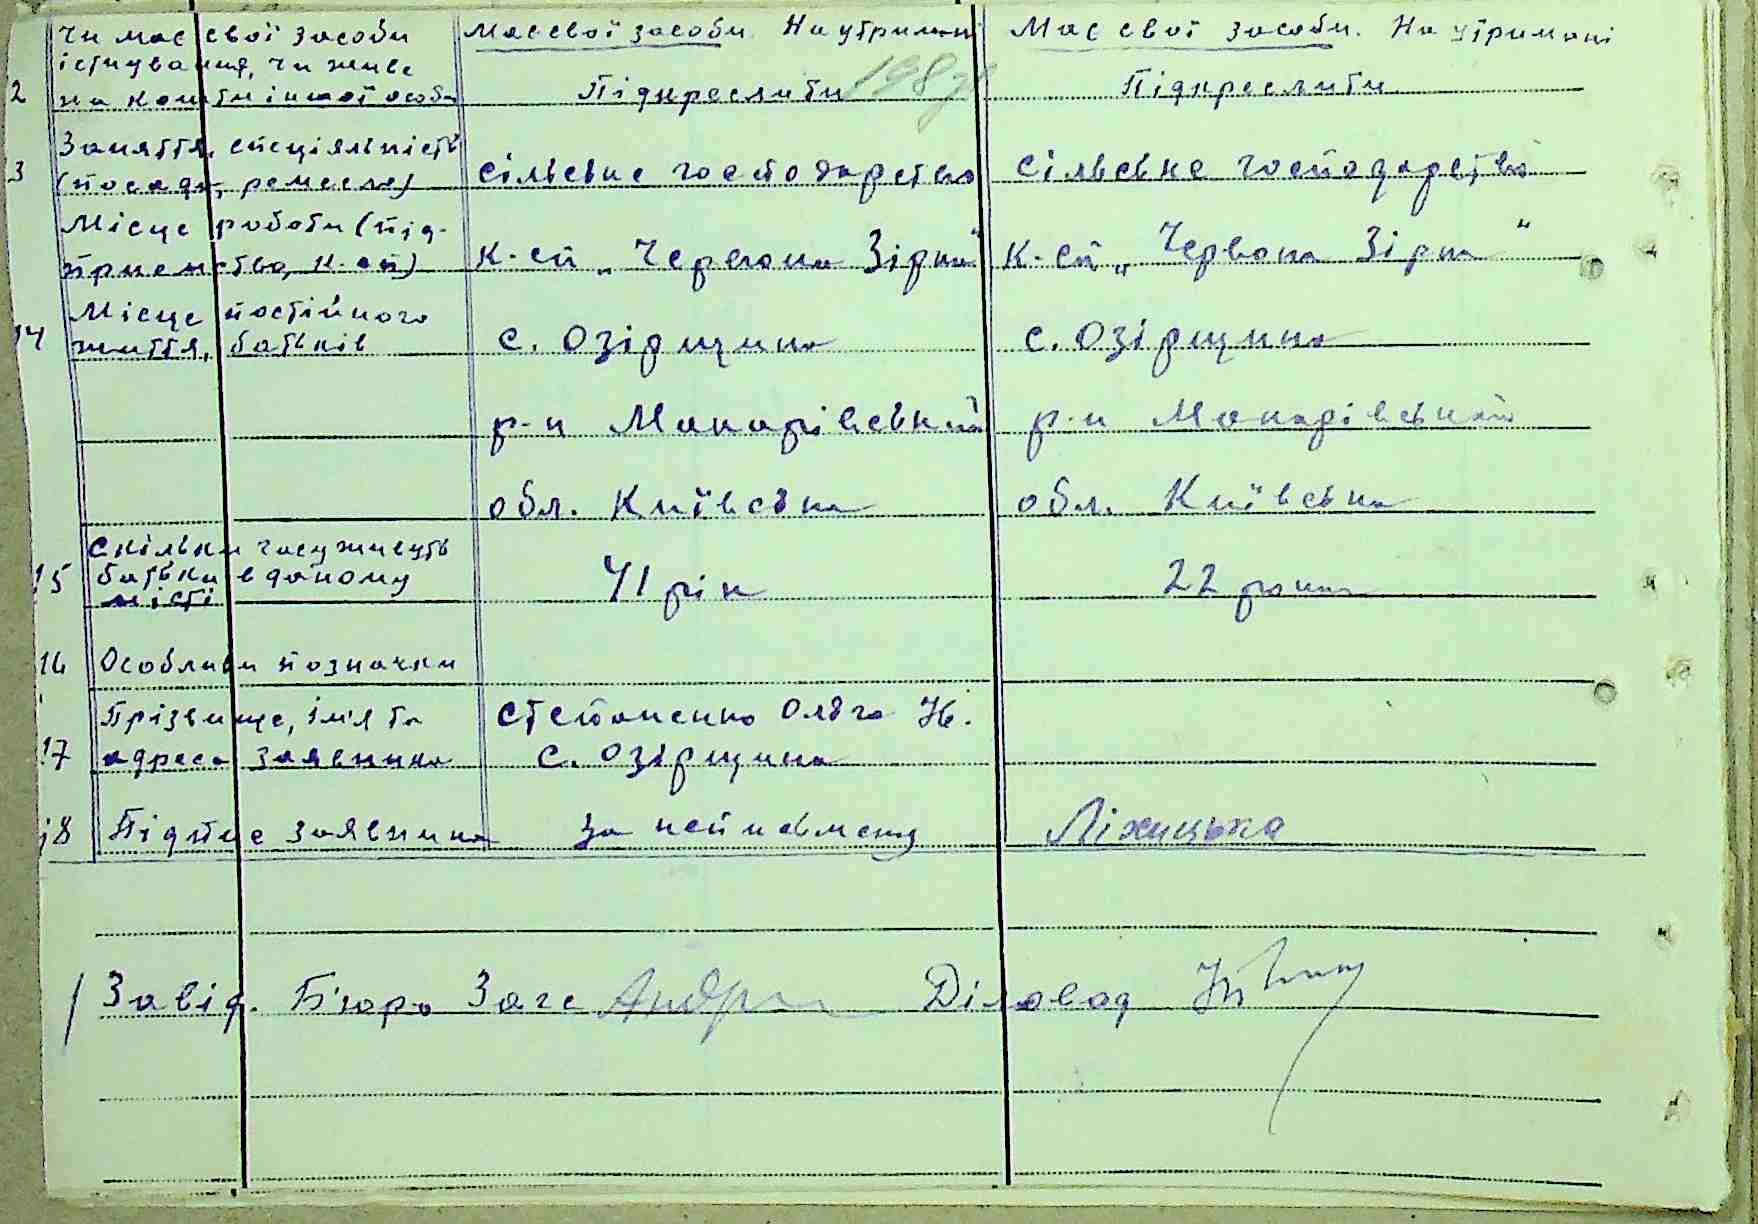 Чи має свої засоби
існування, чи живе
2 на кошти іншої особи
Має свої засоби. На утриман
Підкреслити
Має свої засоби. На утримані
Підкреслити
Заняття, спеціяльність
3 (посада, ремесло)
сільське господарство
сільське господарство
Місце роботи (під-
приємство, к-сп)
к-сп „Червона Зірка"
к-сп „Червона Зірка"
Місце постійного
14 життя, батьків
с. Озірщина
с. Озірщина
р-н Макарівський
р-н Макарівський
обл. Київська
обл. Київська
Скільки часу живуть
15 батьки в даному
місті
41 рік
22 роки
16 Особливи позначки
Прізвище, ім'я та
17 адреса заявника
Степаненко Ольга
с. Озірщина
18 Підпис заявника
за неписьмену
Ліхицька
Завід. Бюро Загс
Діловод